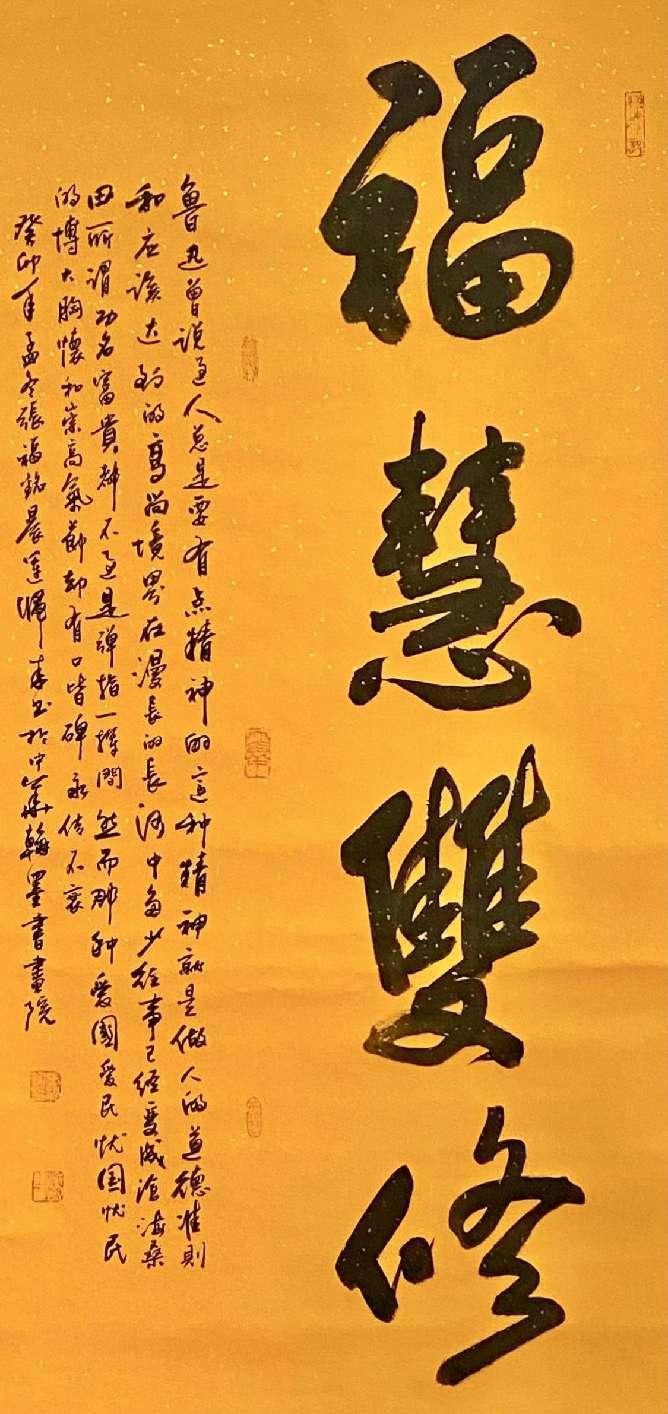 福慧雙修
魯迅曾说过人总是要有点精神的这种精神就是做人的道德准则
和应该达到的高尚境界在漫长的长河中多少往事已经变成沧海桑
田所谓功名富貴都不过是弹指一挥間然而那种爱國爱民忧国忧民
的博大胸懷和崇高氣節却有口皆碑永传不衰
癸卯年孟冬張福銘晨運揮 書於中華翰墨書畫院